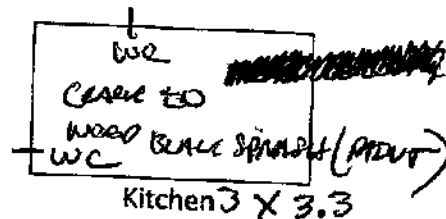 WC
CRACK TO
WOOD BLACK SPLASH (PAINT)
WC
Kitchen 3 X 3.3